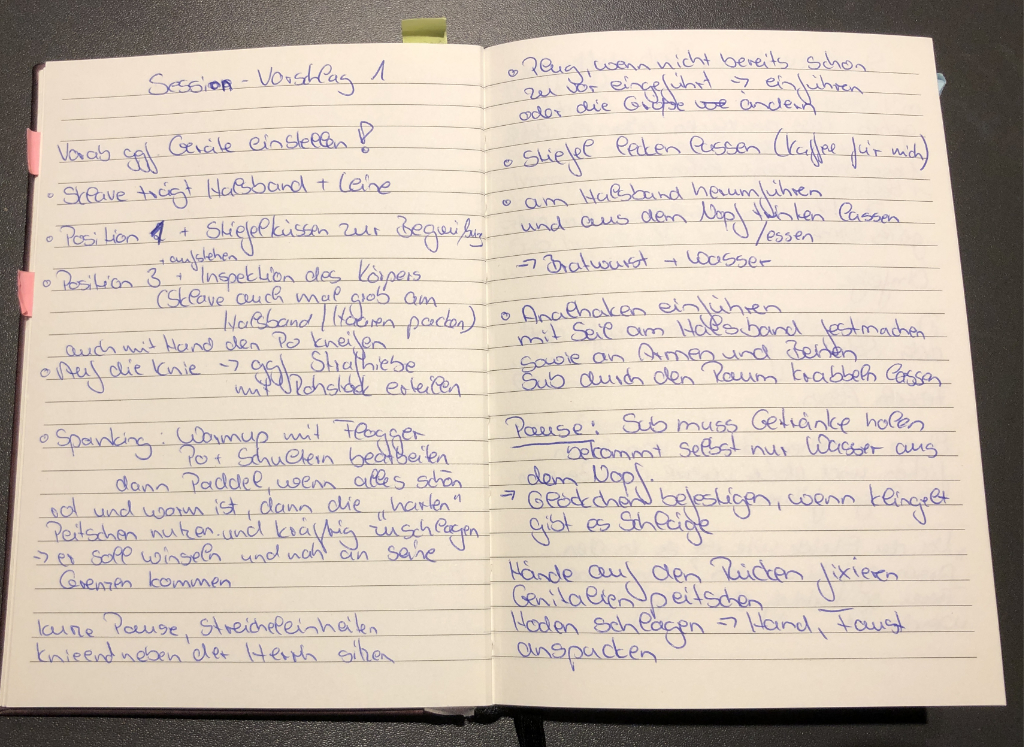 Session - Vorschlag 1
Vorab ggf Geräte einstellen!
• Sklave trägt Halsband + Leine
• Position 1 + Stiefelküssen zur Begrüßung
+ aufstehen
• Position 3 + Inspektion des Körpers
(Sklave auch mal grob am
Halsband / Haaren packen)
auch mit Hand den Po kneifen
• Auf die Knie → ggf Strafhiebe
mit Rohstock erteilen
• Spanking: Warmup mit Flogger
Po + Schultern bearbeiten
dann Paddel, wenn alles schön
rot und warm ist, dann die „harten"
Peitschen nutzen und kräftig zuschlagen
→ er soll winseln und nah an seine
Grenzen kommen
kurze Pause, Streicheleinheiten
knieend neben der Herrin sitzen
• Plug, wenn nicht bereits schon
zu vor eingeführt → einführen
oder die Größe ändern
• Stiefel lecken lassen (Kaffee für mich)
• am Halsband herumführen
und aus dem Napf trinken lassen
/essen
→ Bratwurst + Wasser
• Analhaken einführen
mit Seil am Halsband festmachen
sowie an Armen und Beinen
Sub durch den Raum krabbeln lassen
Pause: Sub muss Getränke holen
bekommt selbst nur Wasser aus
dem Napf.
→ Glöckchen befestigen, wenn klingelt
gibt es Schläge
Hände auf den Rücken fixieren
Genitalien peitschen
Hoden schlagen → Hand, Faust
anspucken